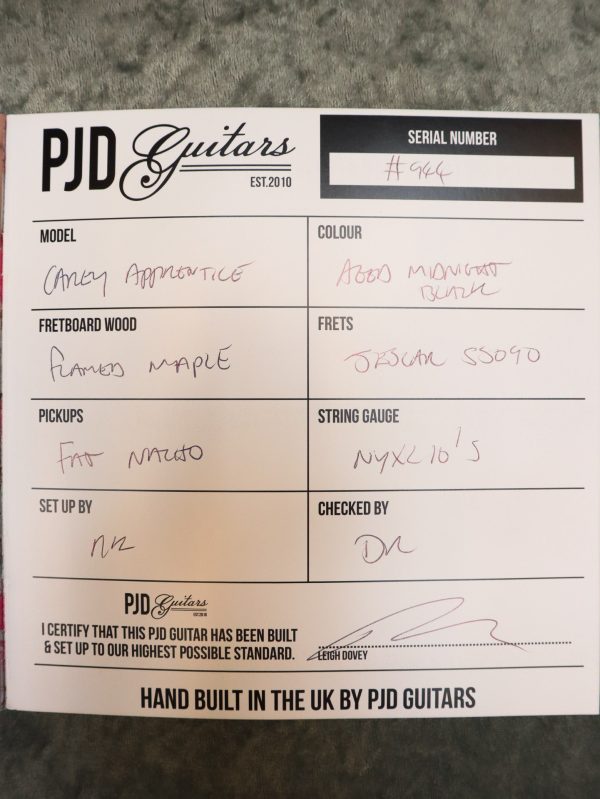 PJD Guitars
EST.2010
SERIAL NUMBER
#944
MODEL
CAREY APPRENTICE
COLOUR
AGED MIDNIGHT
BLACK
FRETBOARD WOOD
FLAMED MAPLE
FRETS
JESCAR SS090
PICKUPS
FAT NACHO
STRING GAUGE
NYXL 10's
SET UP BY
CHECKED BY
PJD Guitars
I CERTIFY THAT THIS PJD GUITAR HAS BEEN BUILT
& SET UP TO OUR HIGHEST POSSIBLE STANDARD.
LEIGH DOVEY
HAND BUILT IN THE UK BY PJD GUITARS